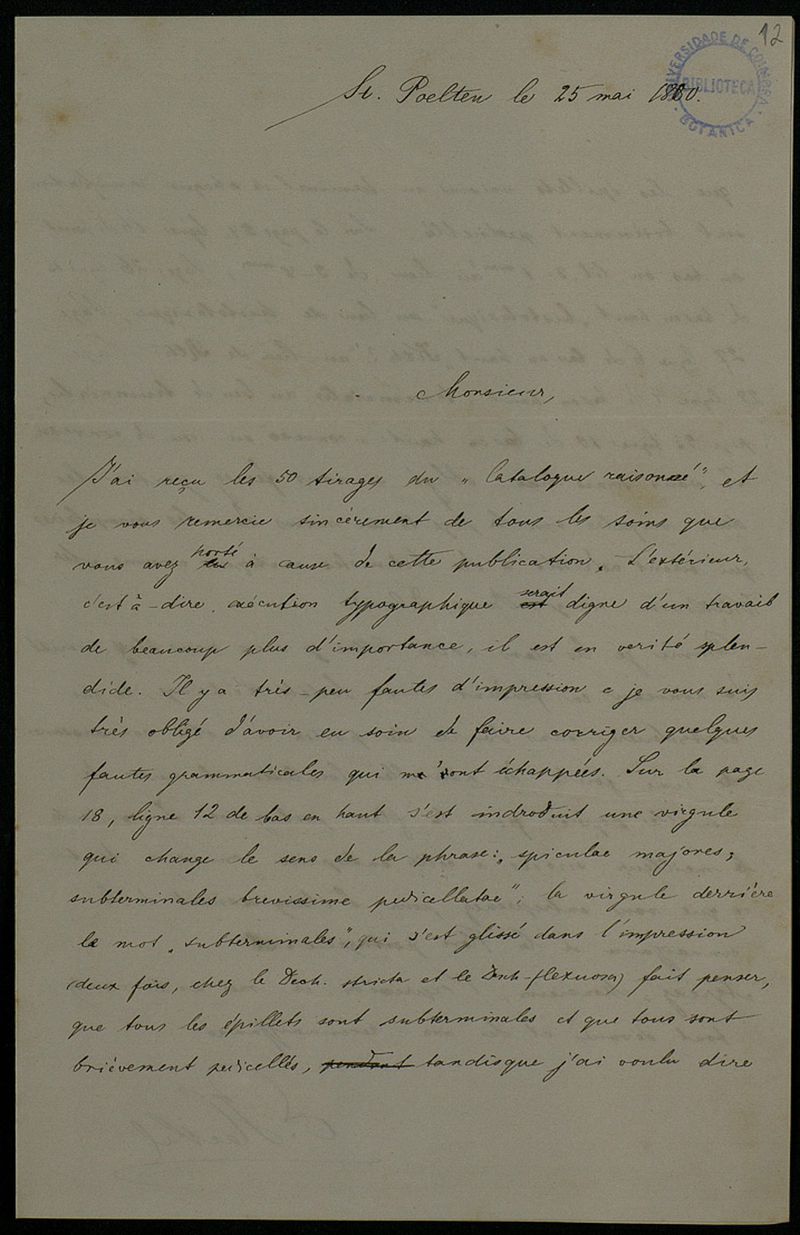 12
UNIVERSIDADE DE COIMBRA
BIBLIOTECA
BOTANICA
St. Poelten le 25 mai 1880.
Monsieur,
J'ai reçu les 50 tirages du „Catalogue raisonné", et
je vous remercie sincèrement de tous les soins que
vous avez porté à cause de cette publication. L'extérieur,
c'est à-dire exécution typographique est serait digne d'un travail
de beaucoup plus d'importance, il est en verité splen-
dide. Il y a très-peu fautes d'impression e je vous suis
très obligé d'avoir eu soin de faire corriger quelques
fautes grammaticales qui m'sont échappées. Sur la page
18, ligne 12 de bas en haut s'est indroduit une virgule
qui change le sens de la phrase: „spiculae majores,
subterminales brevissime pedicellatae"; la virgule derrière
le mot „subterminales", qui s'est glissé dans l'impression
deux fois, chez le Dech. stricta et le Desch. flexuosa) fait penser,
que tous les épillets sont subterminales et que tous sont
brièvement pedicellés, pendant tandisque j'ai voulu dire